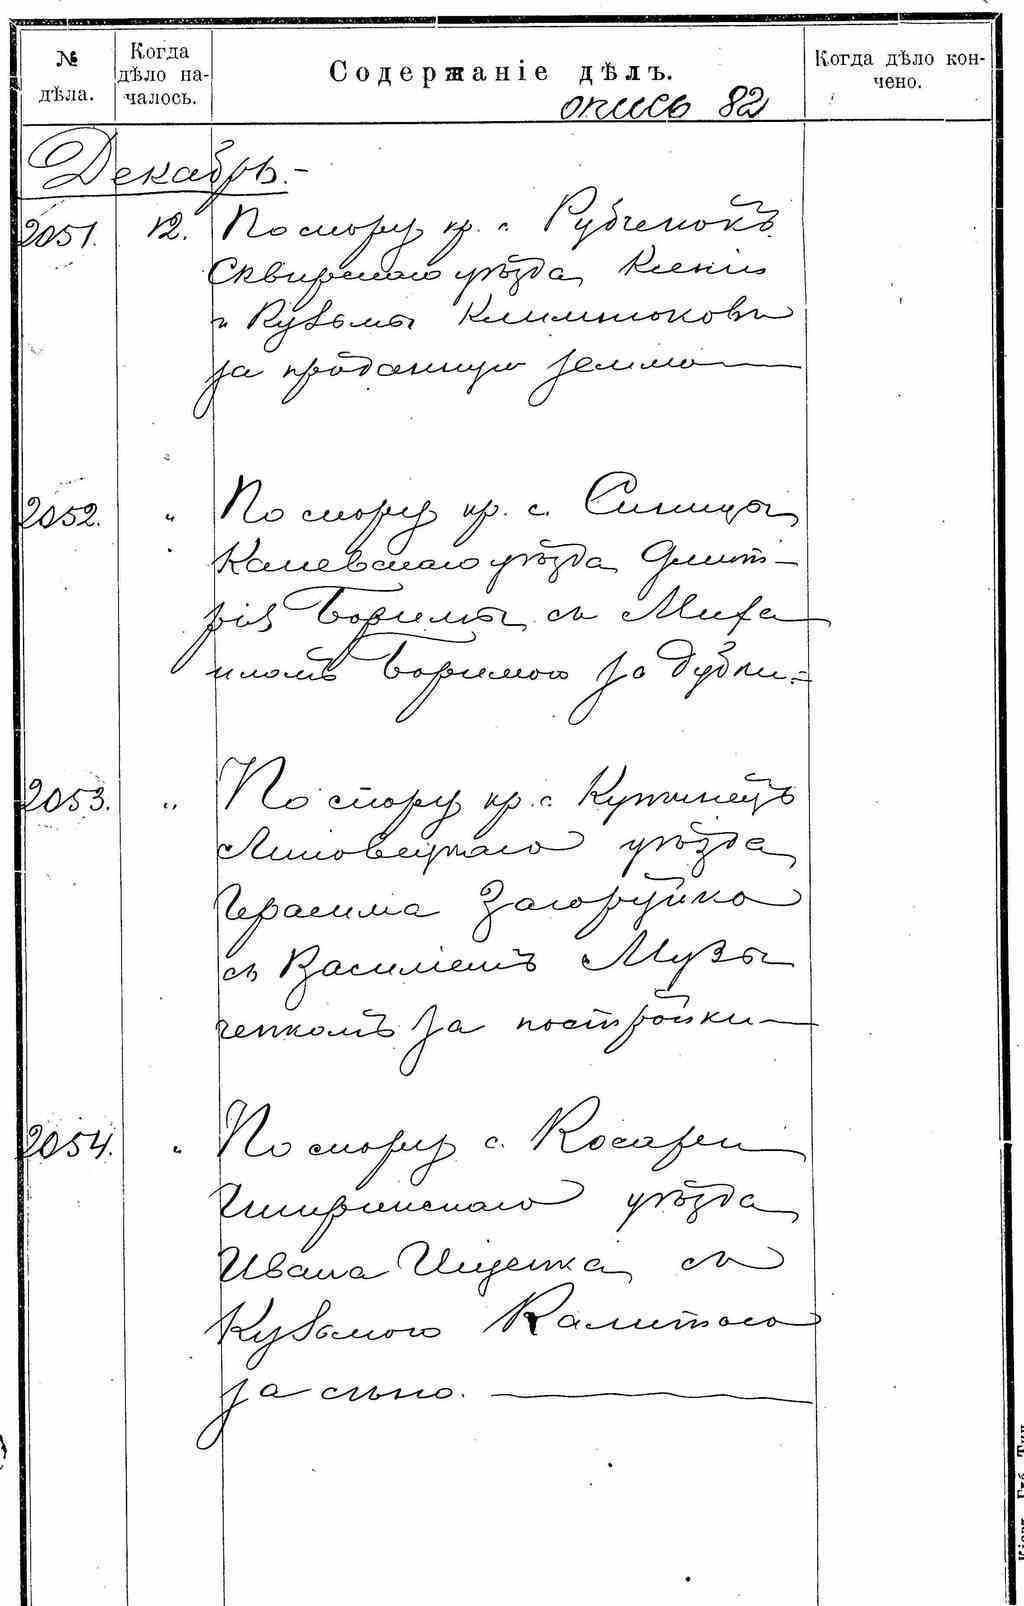 № дѣла.
Когда дѣло на-
чалось.
Содержаніе дѣлъ.
Когда дѣло кон-
чено.
опись 82
Декабрь.-
2051. 12. По спору кр. с. Рубченокъ
Сквирскаго уѣзда Ксеніи
и Кузьмы Климнюковъ
за проданную землю
2052. " По спору кр. с. Синицы
Каневскаго уѣзда Дмит-
рія Боримы съ Миха
иломъ Боримою за дубки.=
2053. " По спору кр. с. Купчинецъ
Липовецкаго уѣзда
Герасима Загоруйко
съ Василіемъ Музы
ченкомъ за постройки
2054. " По спору с.
Чигиринскаго уѣзда
Ивана Ищенка съ
Кузьмою Калитою
за сѣно.
Кіевъ. Губ. Тип.